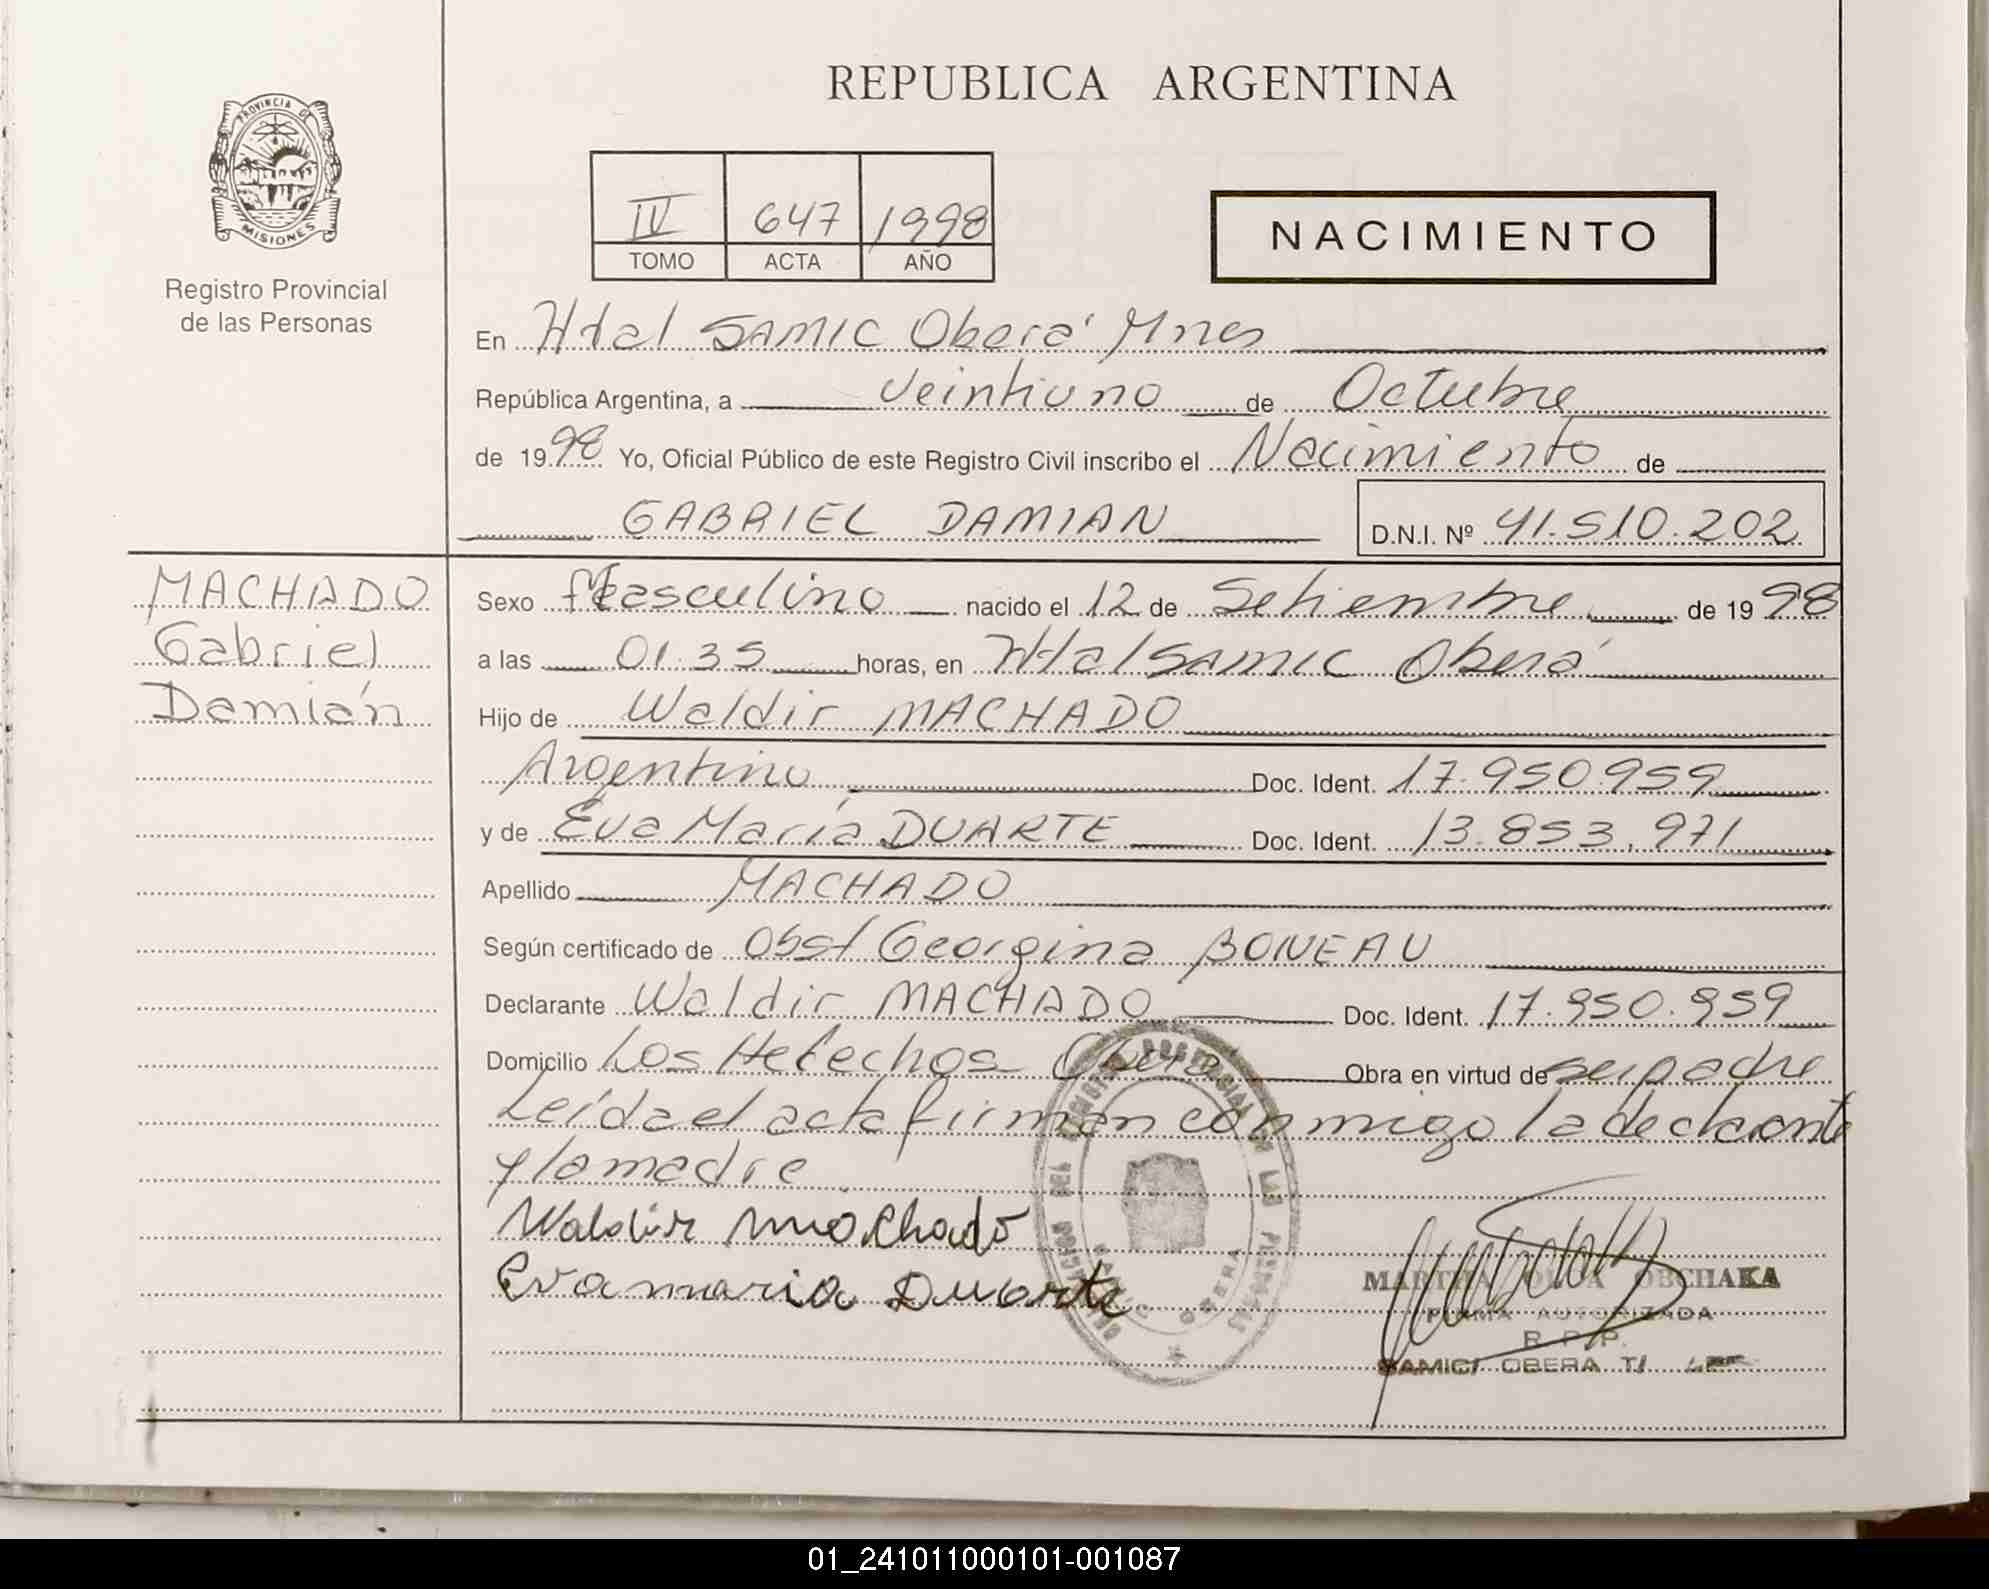 REPUBLICA ARGENTINA
PROVINCIA DE
MISIONES
Registro Provincial
de las Personas
IV 647 1998
TOMO ACTA AÑO
NACIMIENTO
En Htal SAMIC Oberá Mnes
República Argentina, a Veintiuno de Octubre
de 1998 Yo, Oficial Público de este Registro Civil inscribo el Nacimiento de
GABRIEL DAMIAN D.N.I. Nº 41.510.202
MACHADO
Gabriel
Damián
Sexo Masculino nacido el 12 de Setiembre de 1998
a las 01.35 horas, en Htal SAMIC Oberá
Hijo de Waldir MACHADO
Argentino Doc. Ident. 17.950.959
y de Eva María DUARTE Doc. Ident. 13.853.971
Apellido MACHADO
Según certificado de Obst Georgina BONEAU
Declarante Waldir MACHADO Doc. Ident. 17.950.959
Domicilio Los Helechos Oberá Obra en virtud de ser padre
Leída el acta firman conmigo la declarante
y la madre
Waldir Machado
Eva maria Duarte
MARTHA OLGA OBCHAKA
FIRMA AUTORIZADA
R.P.P.
SAMIC OBERA
01_241011000101-001087